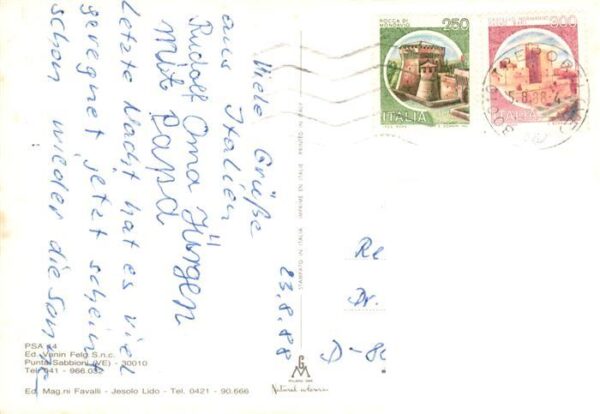 Viele Grüße
aus Italien
Rudolf Oma Jürgen
Mit Papa
letzte Nacht hat es viel
geregnet jetzt scheint
schon wieder die Sonne
23.8.88
Re
Dr.
D-8
ROCCA DI
MONDAVIO
250
ITALIA
900
ITALIA
STAMPATO IN ITALIA - IMPRIMÉ EN ITALIE - PRINTED IN ITALY
PSA 64
Ed. Vanin Felg S.n.c.
Punta Sabbioni (VE) - 30010
Tel. 041 - 966.032
Ed. Mag.ni Favalli - Jesolo Lido - Tel. 0421 - 90.666